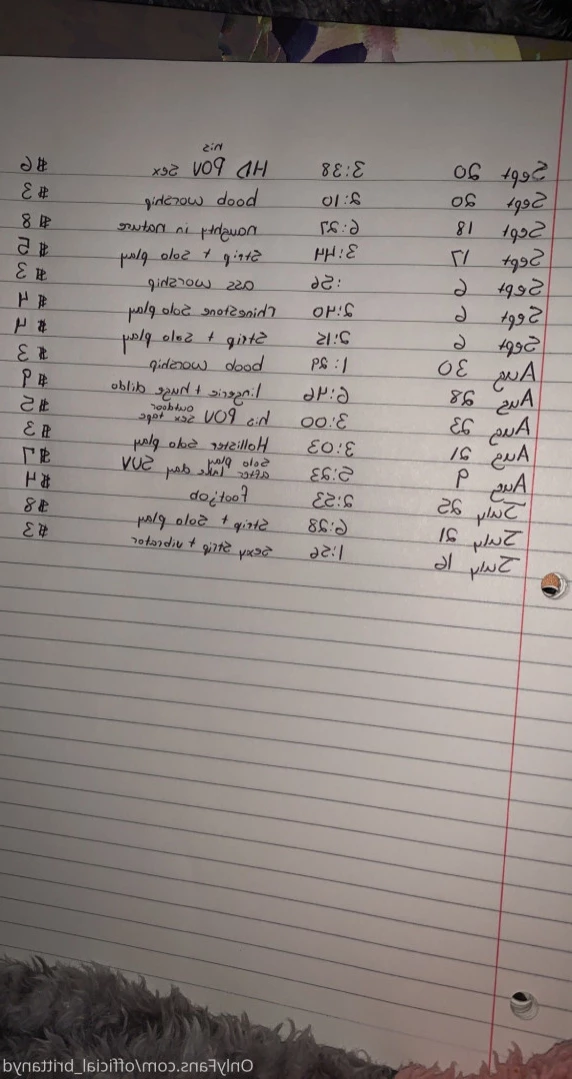 Sept 20 3:38 HD his POV sex $6
Sept 20 2:10 boob worship $3
Sept 18 6:27 naughty in nature $8
Sept 17 3:44 Strip + solo play $5
Sept 6 :56 ass worship $3
Sept 6 2:40 rhinestone solo play $4
Sept 6 2:12 Strip + solo play $4
Aug 30 1:29 boob worship $3
Aug 28 6:46 lingerie + huge dildo $9
Aug 23 3:00 his POV outdoor sex tape $5
Aug 21 3:03 Hollister solo play $3
Aug 9 after lake day SUV solo play $7
July 25 2:23 footjob $4
July 21 6:28 Strip + solo play $8
July 16 1:26 Sexy strip + vibrator $3
OnlyFans.com/official_brittanyd